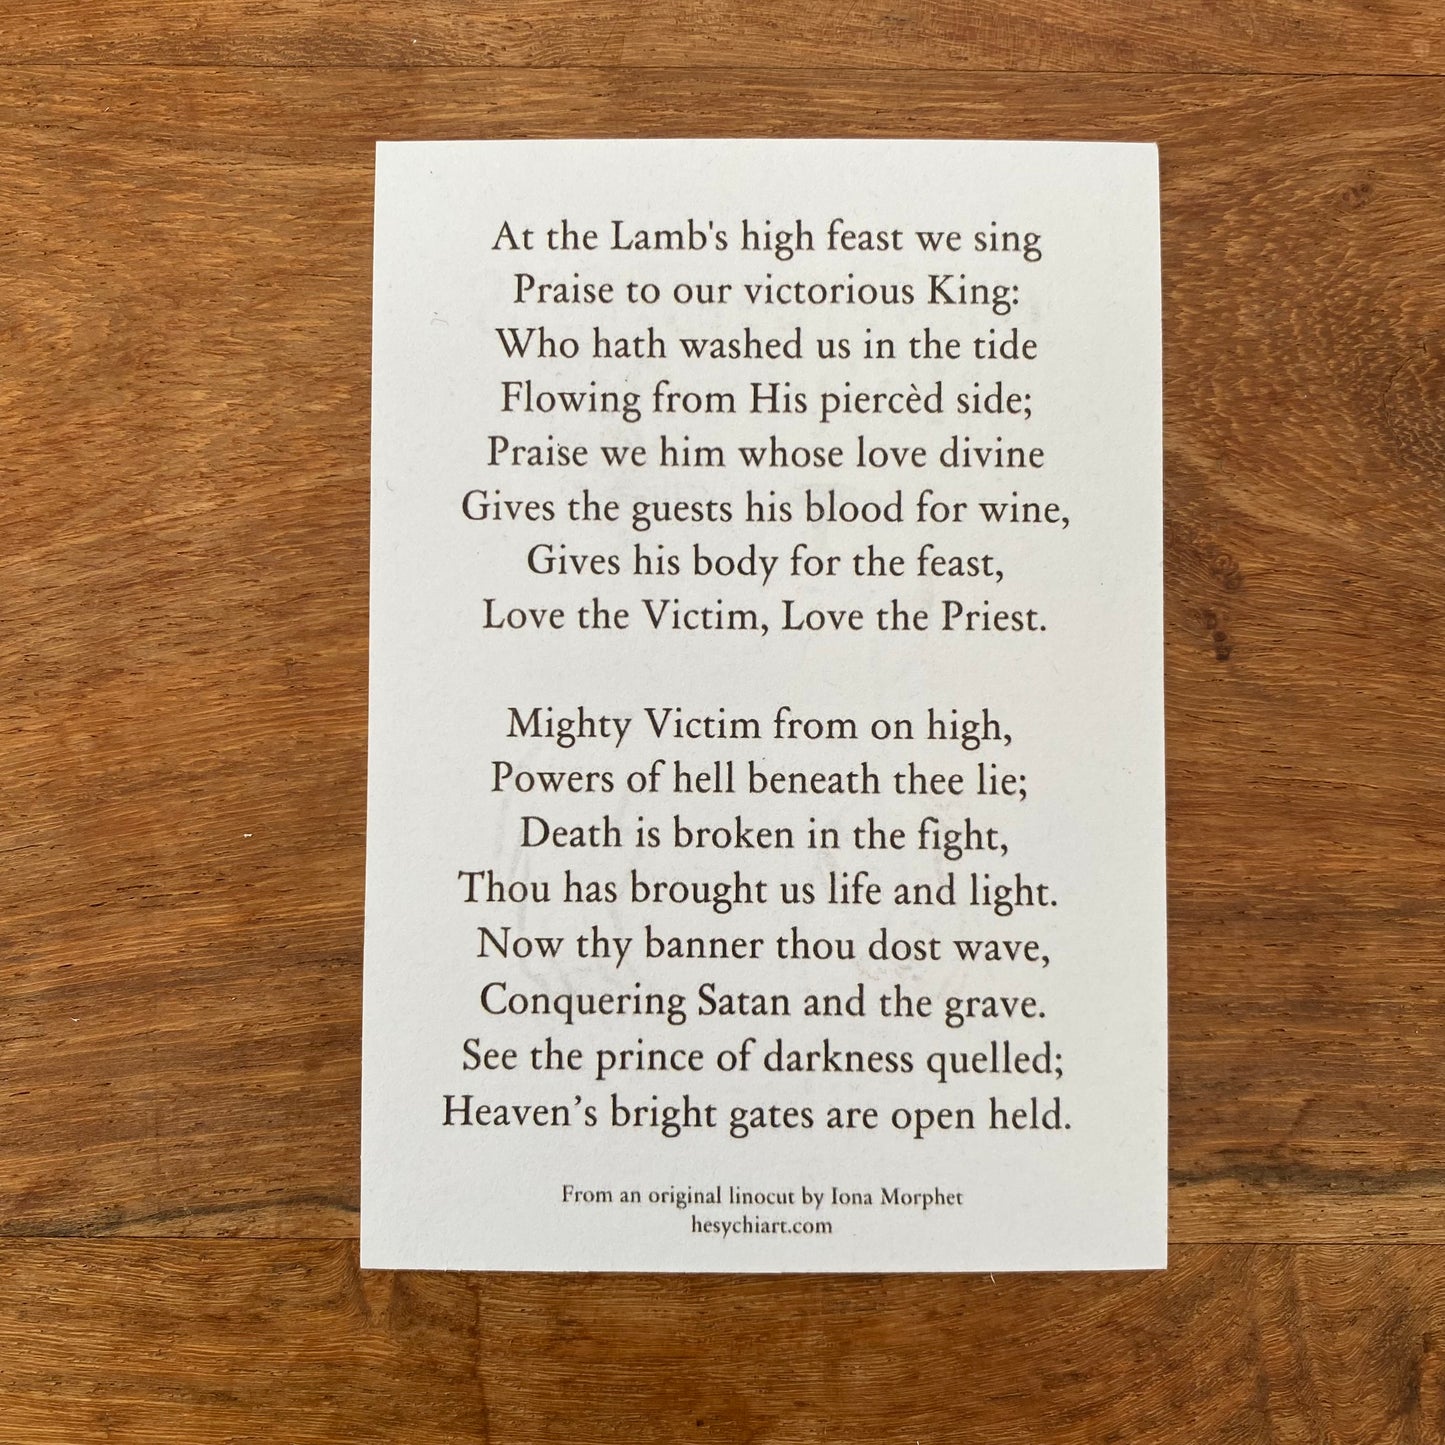 At the Lamb's high feast we sing
Praise to our victorious King:
Who hath washed us in the tide
Flowing from His piercèd side;
Praise we him whose love divine
Gives the guests his blood for wine,
Gives his body for the feast,
Love the Victim, Love the Priest.
Mighty Victim from on high,
Powers of hell beneath thee lie;
Death is broken in the fight,
Thou has brought us life and light.
Now thy banner thou dost wave,
Conquering Satan and the grave.
See the prince of darkness quelled;
Heaven’s bright gates are open held.
From an original linocut by Iona Morphet
hesychiart.com